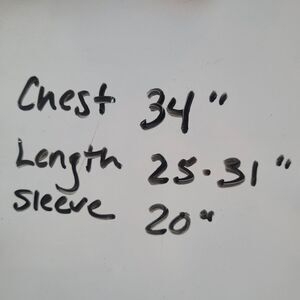 Chest 34"
Length 25.31"
Sleeve 20"